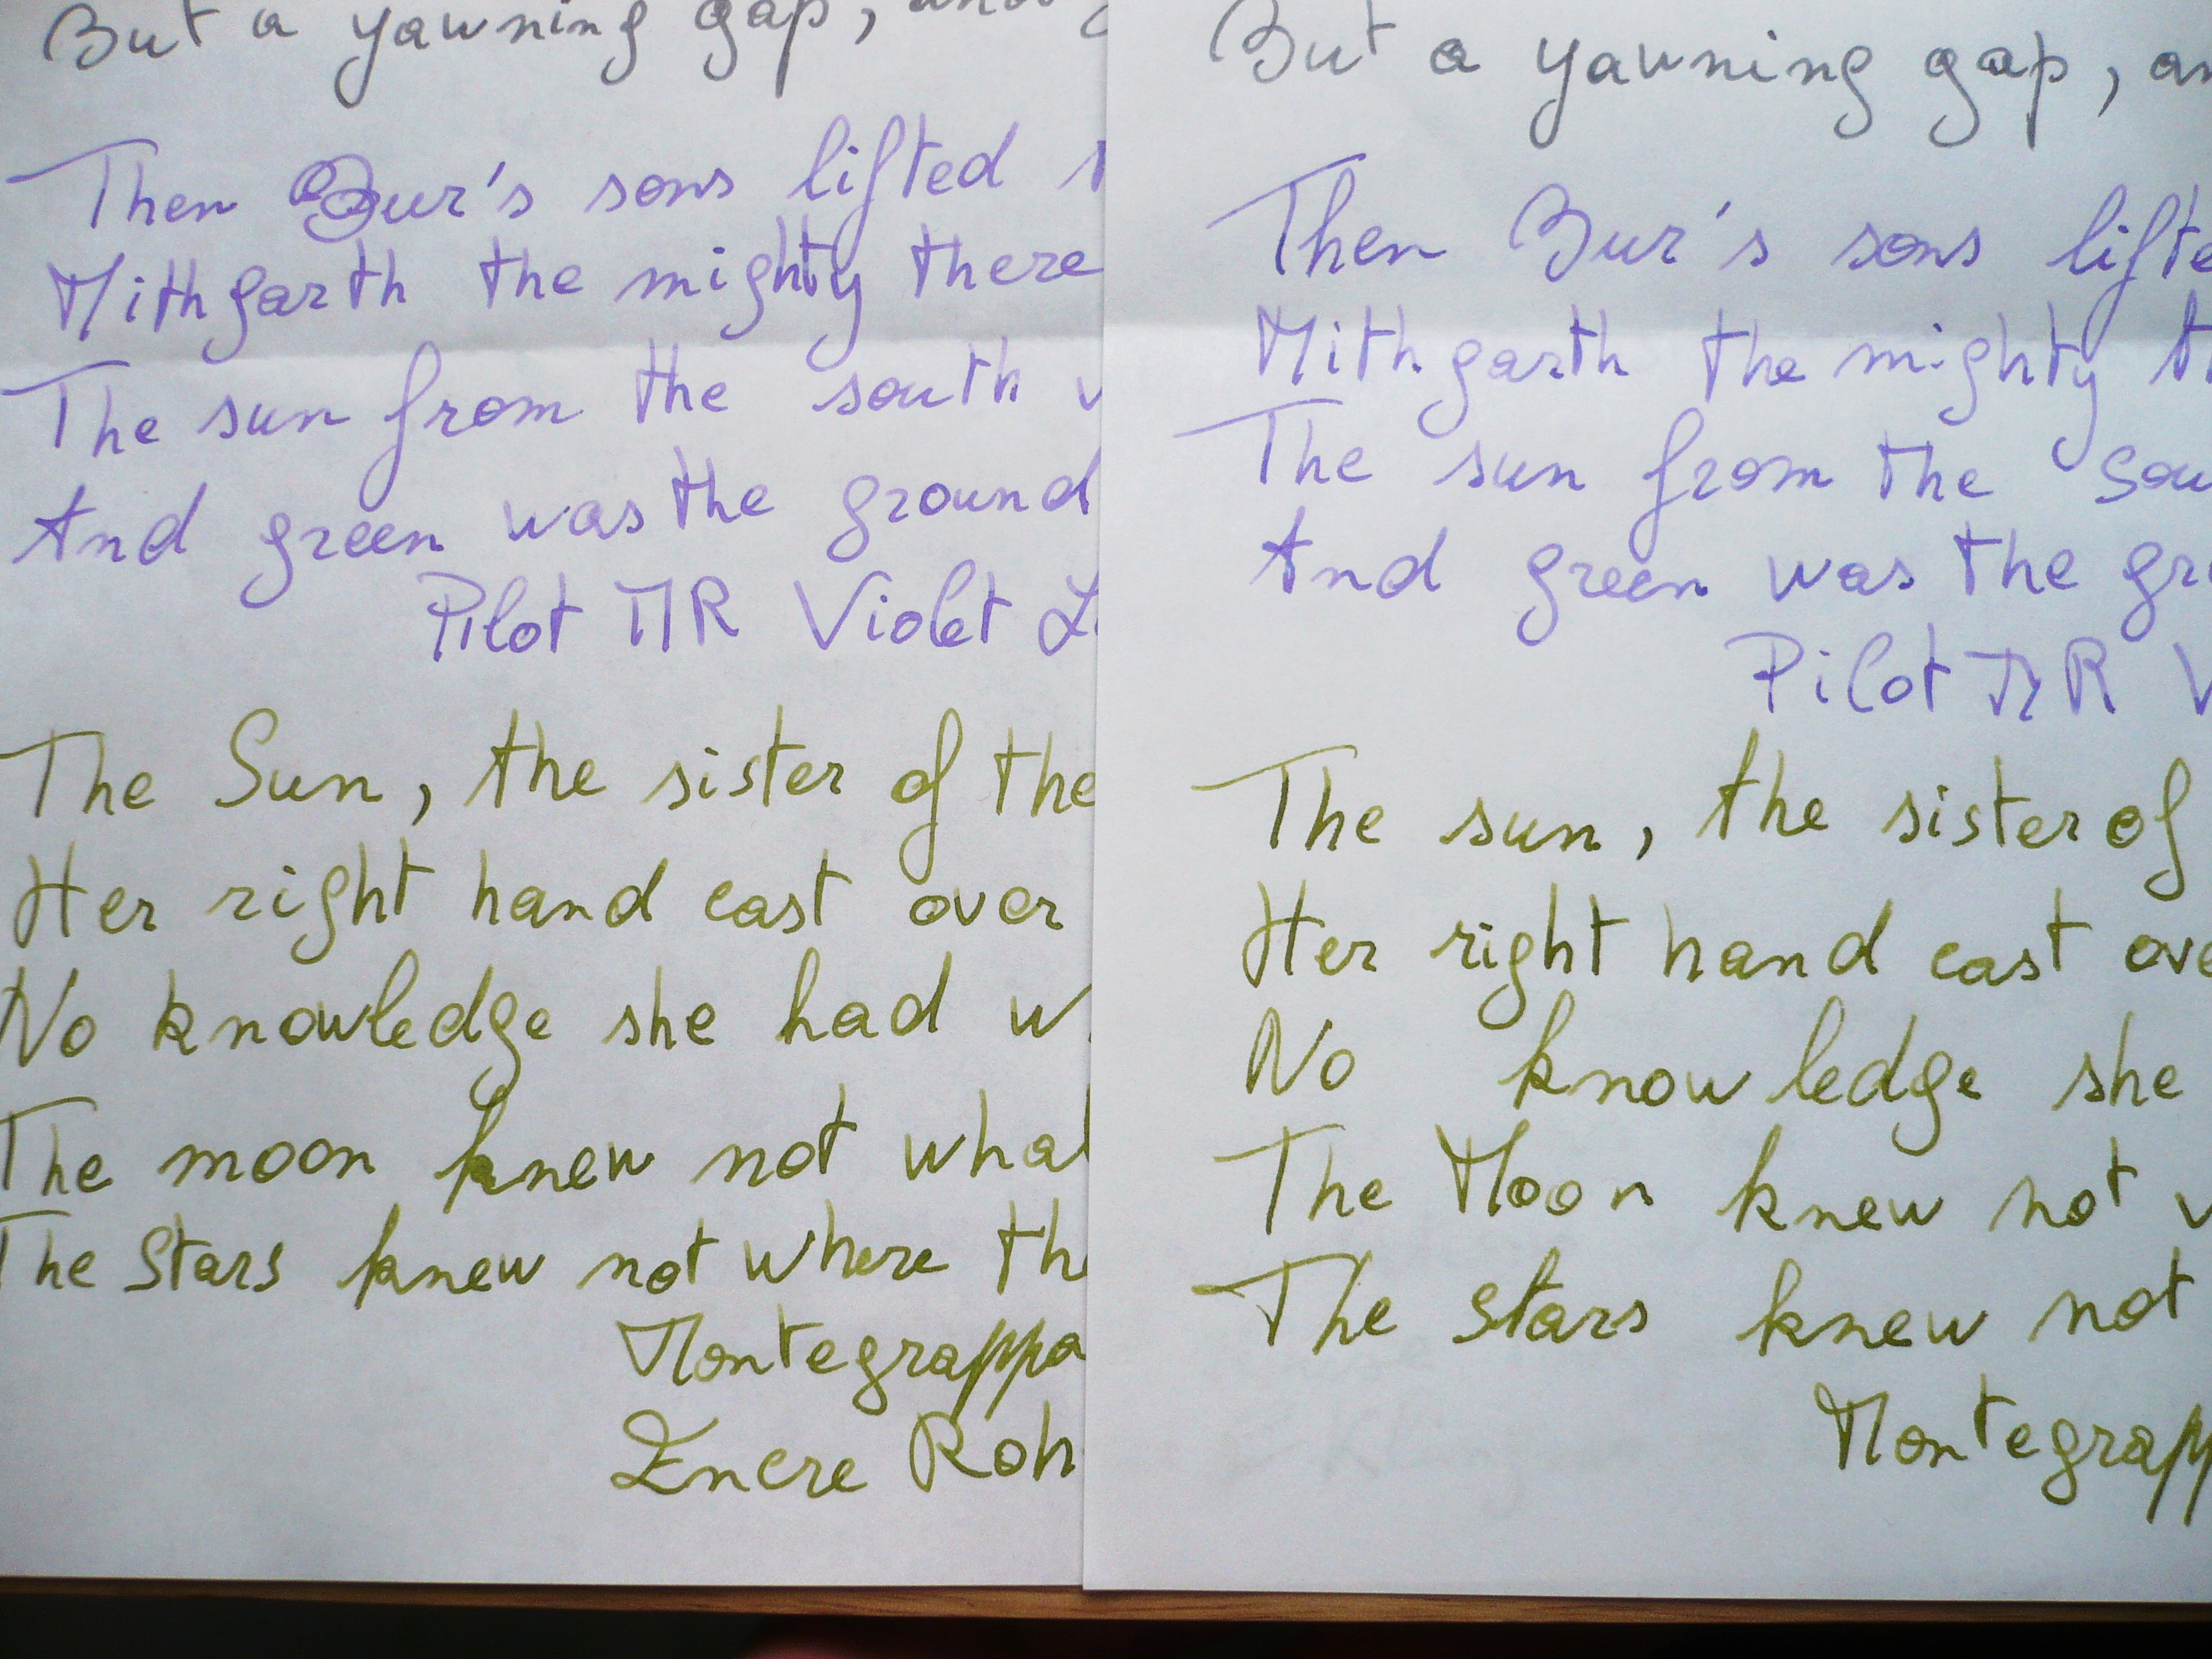 But a yawning gap,
Then Bur's sons lifted
Mithgarth the mighty there
The sun from the south
And green was the ground
Pilot MR Violet
The Sun, the sister of the
Her right hand cast over
No knowledge she had
The moon knew not what
The Stars knew not where
Montegrappa
Encre
But a yawning gap,
Then Bur's sons
Mithgarth the mighty
The sun from the
And green was the
Pilot MR
The sun, the sister of
Her right hand cast
No knowledge she
The Moon knew not
The stars knew not